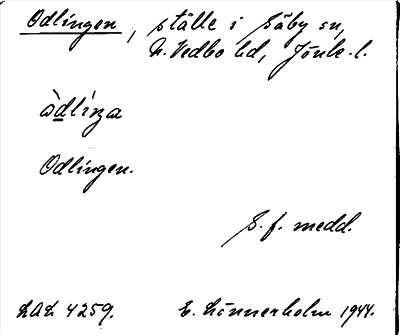 Odlingen, ställe i Säby sn,
N. Vedbo hd, Jönk. l.
òdlíŋa
Odlingen.
S. f. medd.
LAL 4259. E. Lönnerholm 1944.